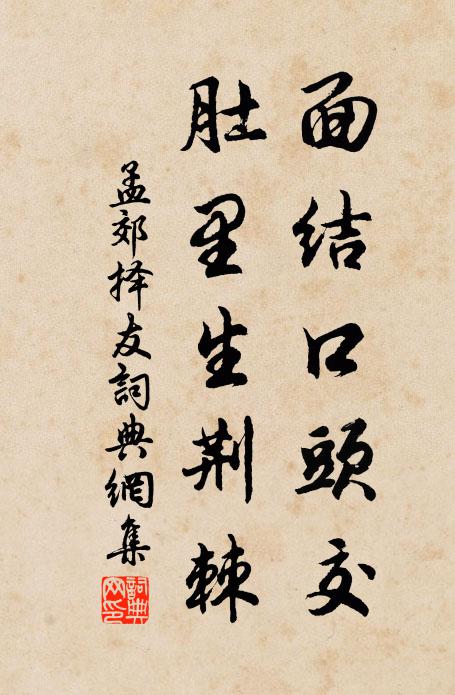 面结口頭交
肚里生荆棘
孟郊择友詞典網集
詞典网印